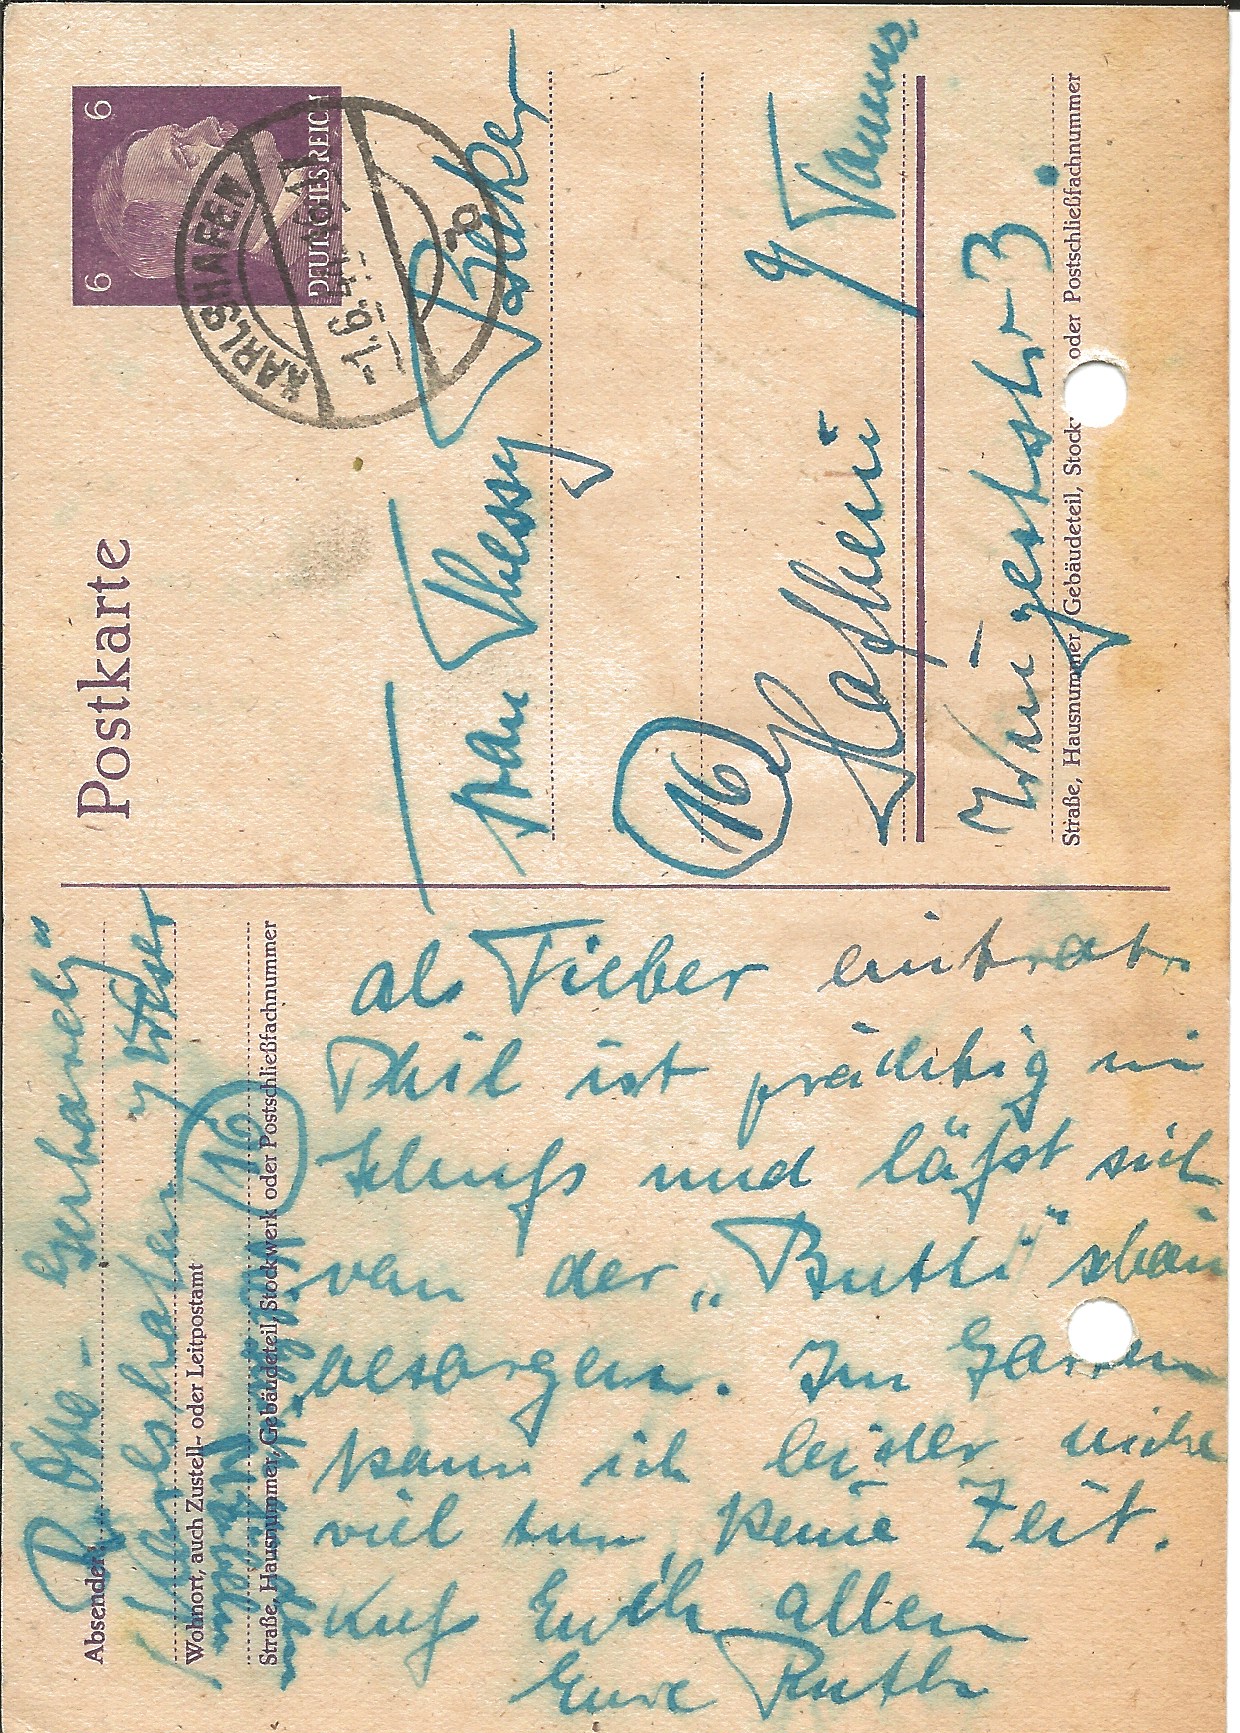 Postkarte
6 6
DEUTSCHES REICH
KARLSHAFEN
-1.6.44-17
b
Absender:
Karlshafen
Weser
Wohnort, auch Zustell- oder Leitpostamt
16
Straße, Hausnummer, Gebäudeteil, Stockwerk oder Postschließfachnummer
als Fieber eintrat.
Phil ist prächtig in
Schuß und läßt sich
von der „Buthi" schön
besorgen. Im Garten
kann ich leider nicht
viel tun, keine Zeit.
Kuß Euch allen
Eure Ruth
Frau Thessy Becker
16
Hofheim
Taunus.
Wein gertstr 3.
Straße, Hausnummer, Gebäudeteil, Stock oder Postschließfachnummer